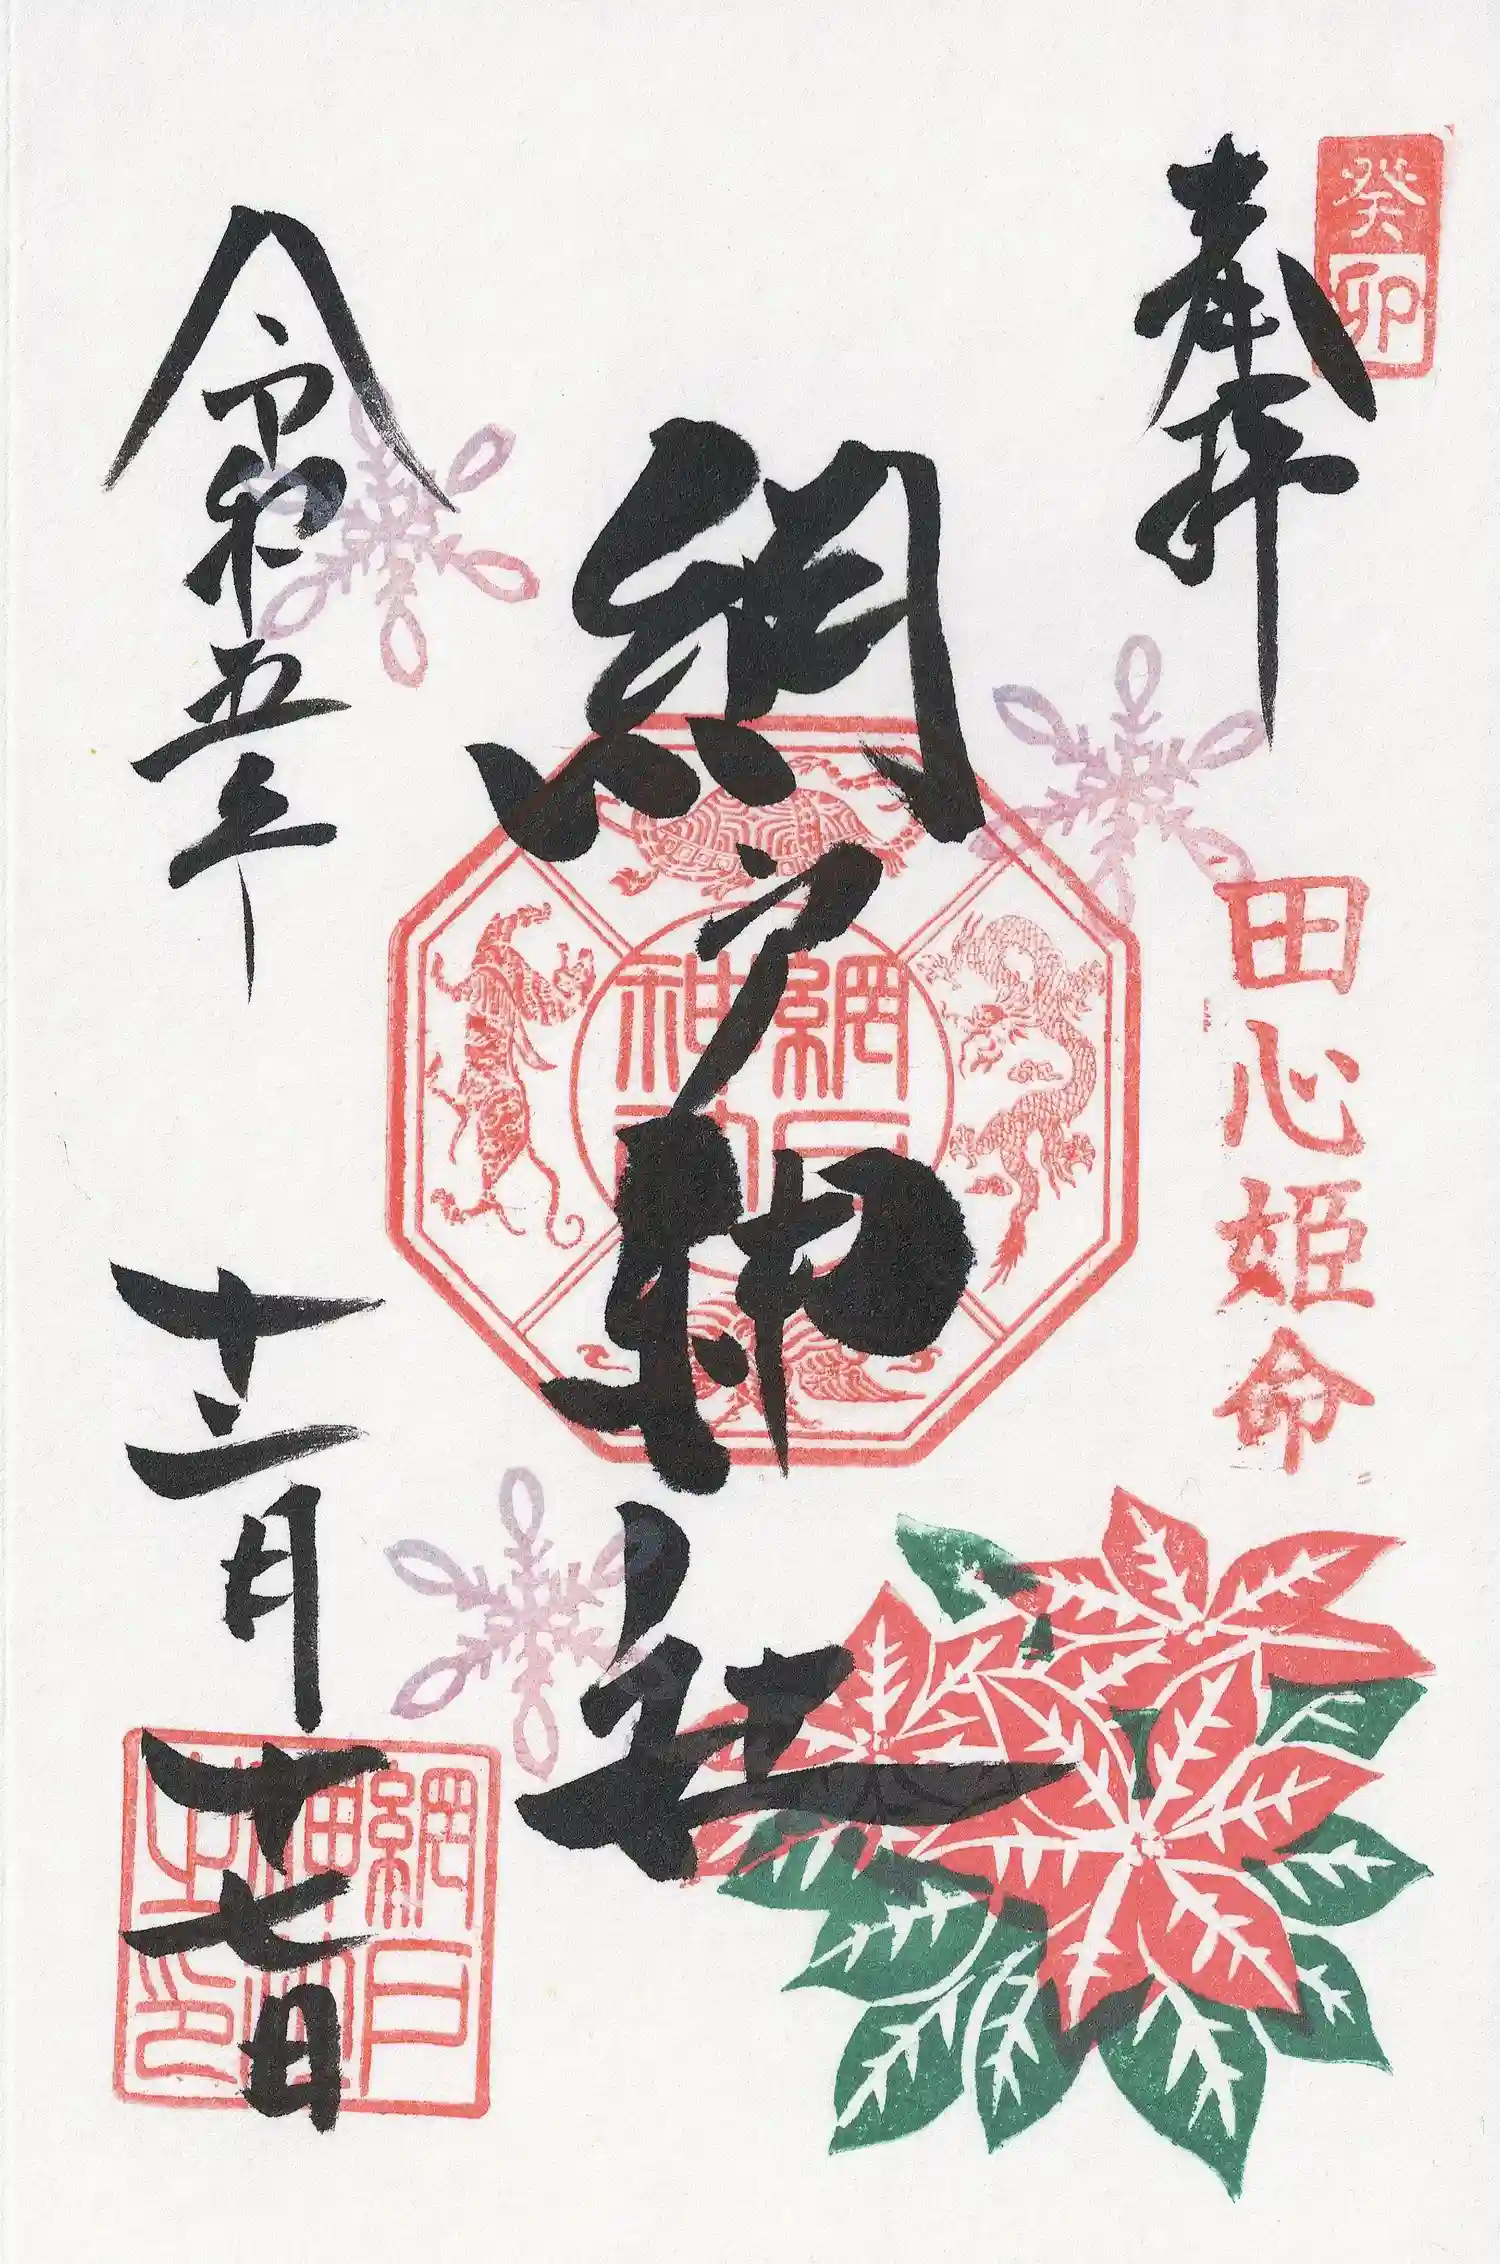 癸卯
奉拝
田心姫命
網戸神社
網戸
神社
令和五年
十二月十七日
網戸
神社
之印